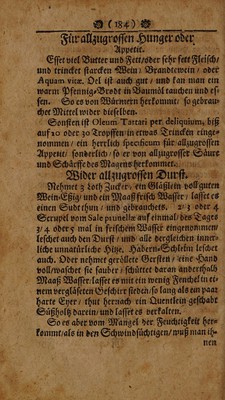 (184)
Für allzugrossen Hunger oder
Appetit.
Esset viel Butter und Fett/oder sehr fett Fleisch/
und trincket starcken Wein/ Brandtewein / oder
Aquam vitæ. Oel ist auch gut / und kan man ein
warm Pfennig-Brodt in Baumöl tauchen und es-
sen. So es von Würmern herkommt/ so gebrau-
chet Mittel wider dieselben.
Sonsten ist Oleum Tartari per deliquium, biß
auf 20 oder 30 Tropffen/in etwas Trincken einge-
nommen / ein herrlich specificum für allzugrossen
Appetit / sonderlich / so er von allzugrosser Säure
und Schärffe des Magens herkommet.
Wider allzugrossen Durst.
Nehmet 3 Loth Zucker/ ein Gläßlein voll guten
Wein-Eßig/ und ein Maaß frisch Wasser/ lasset es
einen Sud thun/ und gebrauchets. 2/ 3 oder 4
Scrupel vom Sale prunellæ auf einmal/ des Tages
3/ 4 oder 5 mal in frischem Wasser eingenommen/
leschet auch den Durst / und alle dergleichen inner-
liche unnatürliche Hitze. Habern-Schleim leschet
auch. Oder nehmet geröllete Gersten / eine Hand
voll/waschet sie sauber / schüttet daran anderthalb
Maaß Wasser/ lasset es mit ein wenig Fenchel in ei-
nem verglaseten Geschirr sieden/ so lang als ein paar
harte Eyer / thut hernach ein Quentlein geschabt
Süßholtz darein/ und lasset es verkalten.
So es aber vom Mangel der Feuchtigkeit her-
kommt/als in den Schwindsüchtigen/ muß man ih-
nen